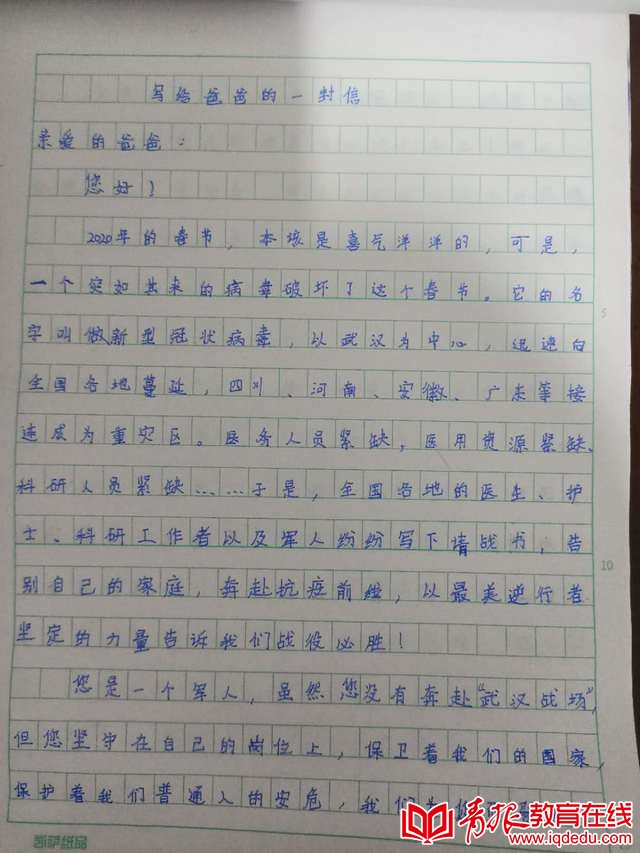 写给爸爸的一封信
亲爱的爸爸:
您好!
2020年的春节,本该是喜气洋洋的,可是,
一个突如其来的病毒破坏了这个春节。它的名
字叫做新型冠状病毒,以武汉为中心,迅速向
全国各地蔓延,四川、河南、安徽、广东等接
连成为重灾区。医务人员紧缺,医用资源紧缺、
科研人员紧缺……于是,全国各地的医生、护
士、科研工作者以及军人纷纷写下请战书,告
别自己的家庭,奔赴抗疫前线,以最美逆行者
坚定的力量告诉我们战役必胜!
您是一个军人,虽然您没有奔赴“武汉战场”,
但您坚守在自己的岗位上,保卫着我们的国家,
保护着我们普通人的安危,我们
5
10
凯萨纸品
青报教育在线
www.iqdedu.com